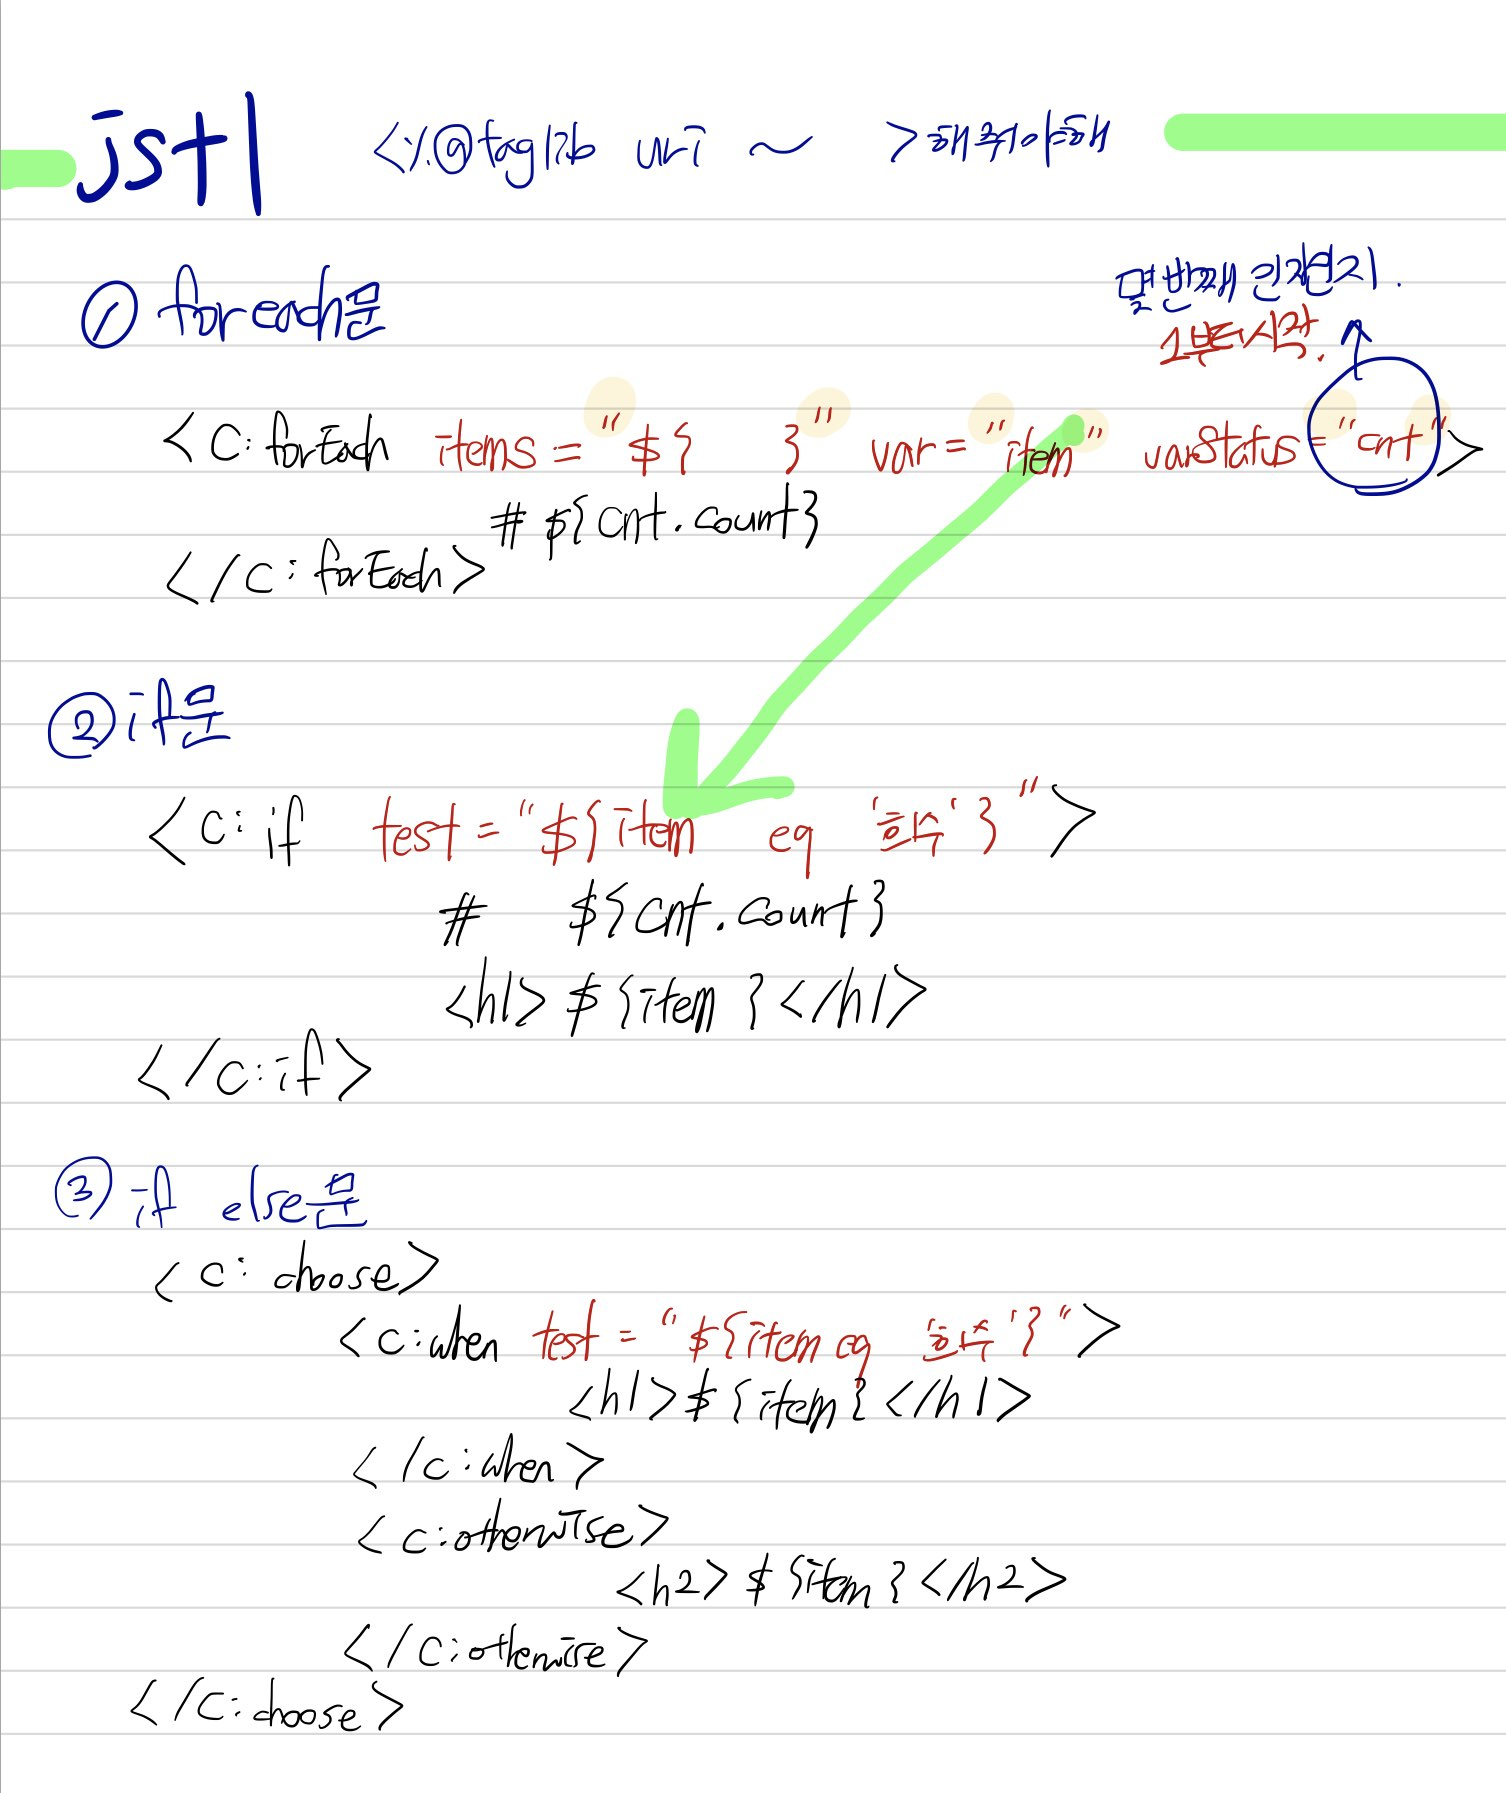 jstl <%@taglib uri ~ >해줘야해
① foreach문
몇번째 인자인지.
1부터시작.
<c:forEach items="${ }" var="item" varStatus="cnt">
# ${cnt.count}
</c:forEach>
② if문
<c:if test="${item eq '흐수'}">
# ${cnt.count}
<h1>${item}</h1>
</c:if>
③ if else문
<c:choose>
<c:when test="${item eq '흐수'}">
<h1>${item}</h1>
</c:when>
<c:otherwise>
<h2>${item}</h2>
</c:otherwise>
</c:choose>